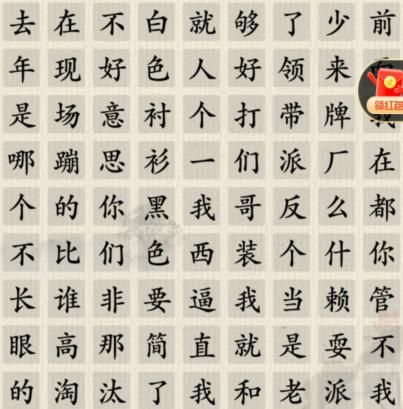 去在不白就够了少前
年现好色人好领来
是场意衬个打带牌我
哪蹦思衫一们派厂在
个的你黑我哥反么都
不比们色西装个什你
长谁非要逼我当赖管
眼高那简直就是耍不
的淘汰了我和老派我
领红包